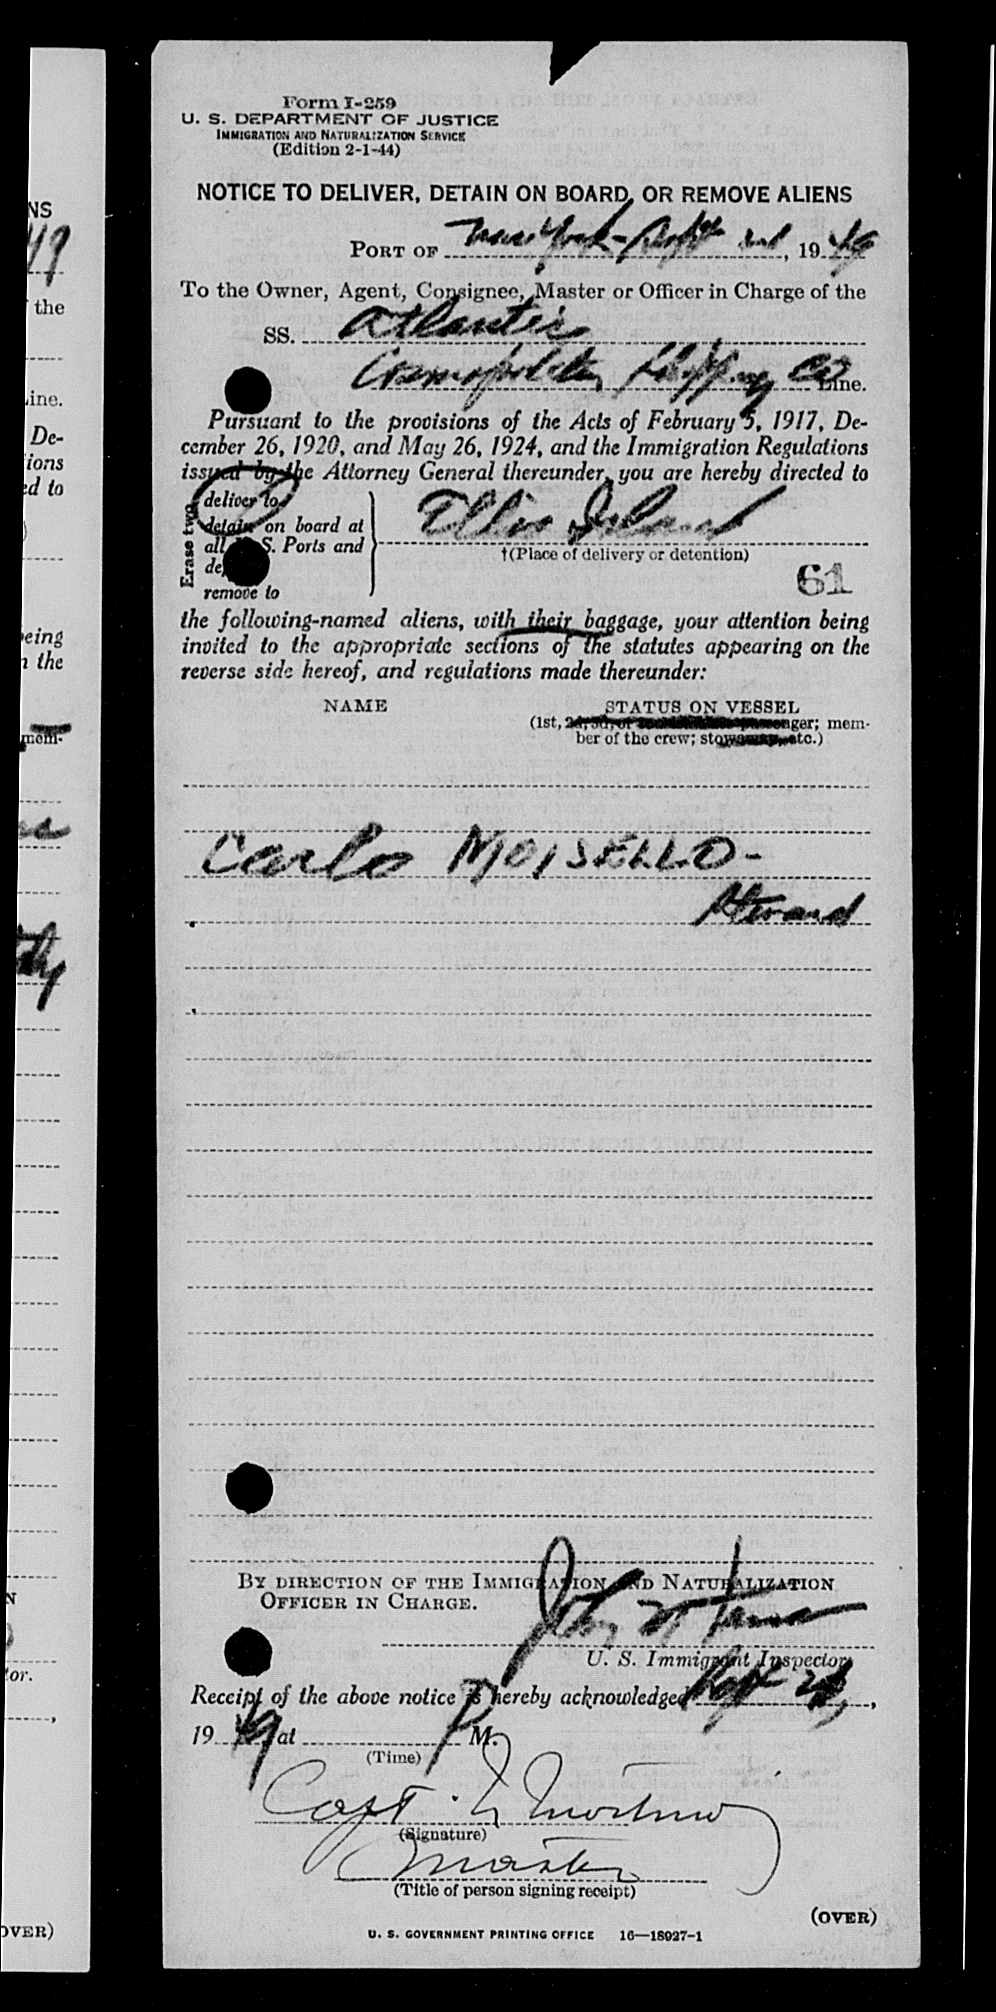 NS
49
the
Line.
De-
ions
ed to
)
eing
n the
mem-
N
tor.
OVER)
Form I-259
U. S. DEPARTMENT OF JUSTICE
IMMIGRATION AND NATURALIZATION SERVICE
(Edition 2-1-44)
NOTICE TO DELIVER, DETAIN ON BOARD, OR REMOVE ALIENS
PORT OF New York - Sept 2nd, 1949
To the Owner, Agent, Consignee, Master or Officer in Charge of the
SS. Atlantis
Cosmopolitan Shipping Co Line.
Pursuant to the provisions of the Acts of February 5, 1917, De-
cember 26, 1920, and May 26, 1924, and the Immigration Regulations
issued by the Attorney General thereunder, you are hereby directed to
Erase two
deliver to
detain on board at
all U. S. Ports and
de
remove to
Ellis Island
†(Place of delivery or detention)
61
the following-named aliens, with their baggage, your attention being
invited to the appropriate sections of the statutes appearing on the
reverse side hereof, and regulations made thereunder:
NAME STATUS ON VESSEL
(1st, 2d, 3d, or passenger; mem-
ber of the crew; stowaway, etc.)
Carlo MOISELLO-
Steward
BY DIRECTION OF THE IMMIGRATION AND NATURALIZATION
OFFICER IN CHARGE.
John
U. S. Immigrant Inspector.
Receipt of the above notice is hereby acknowledged Sept 2d,
1949 at P M.
(Time)
Capt.
(Signature)
Master
(Title of person signing receipt)
(OVER)
U. S. GOVERNMENT PRINTING OFFICE 16—18927-1